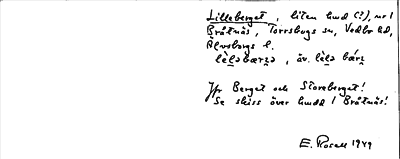 Lilleberget, liten hmd (?), nr 1
Bråtnäs, Torrskogs sn, Vedbo hd,
Älvsborgs l.
lìlə bærʒə, äv. lìlə bǽrʒ
Jfr Berget och Storeberget!
Se skiss över hmdd i Bråtnäs!
E. Rosell 1949